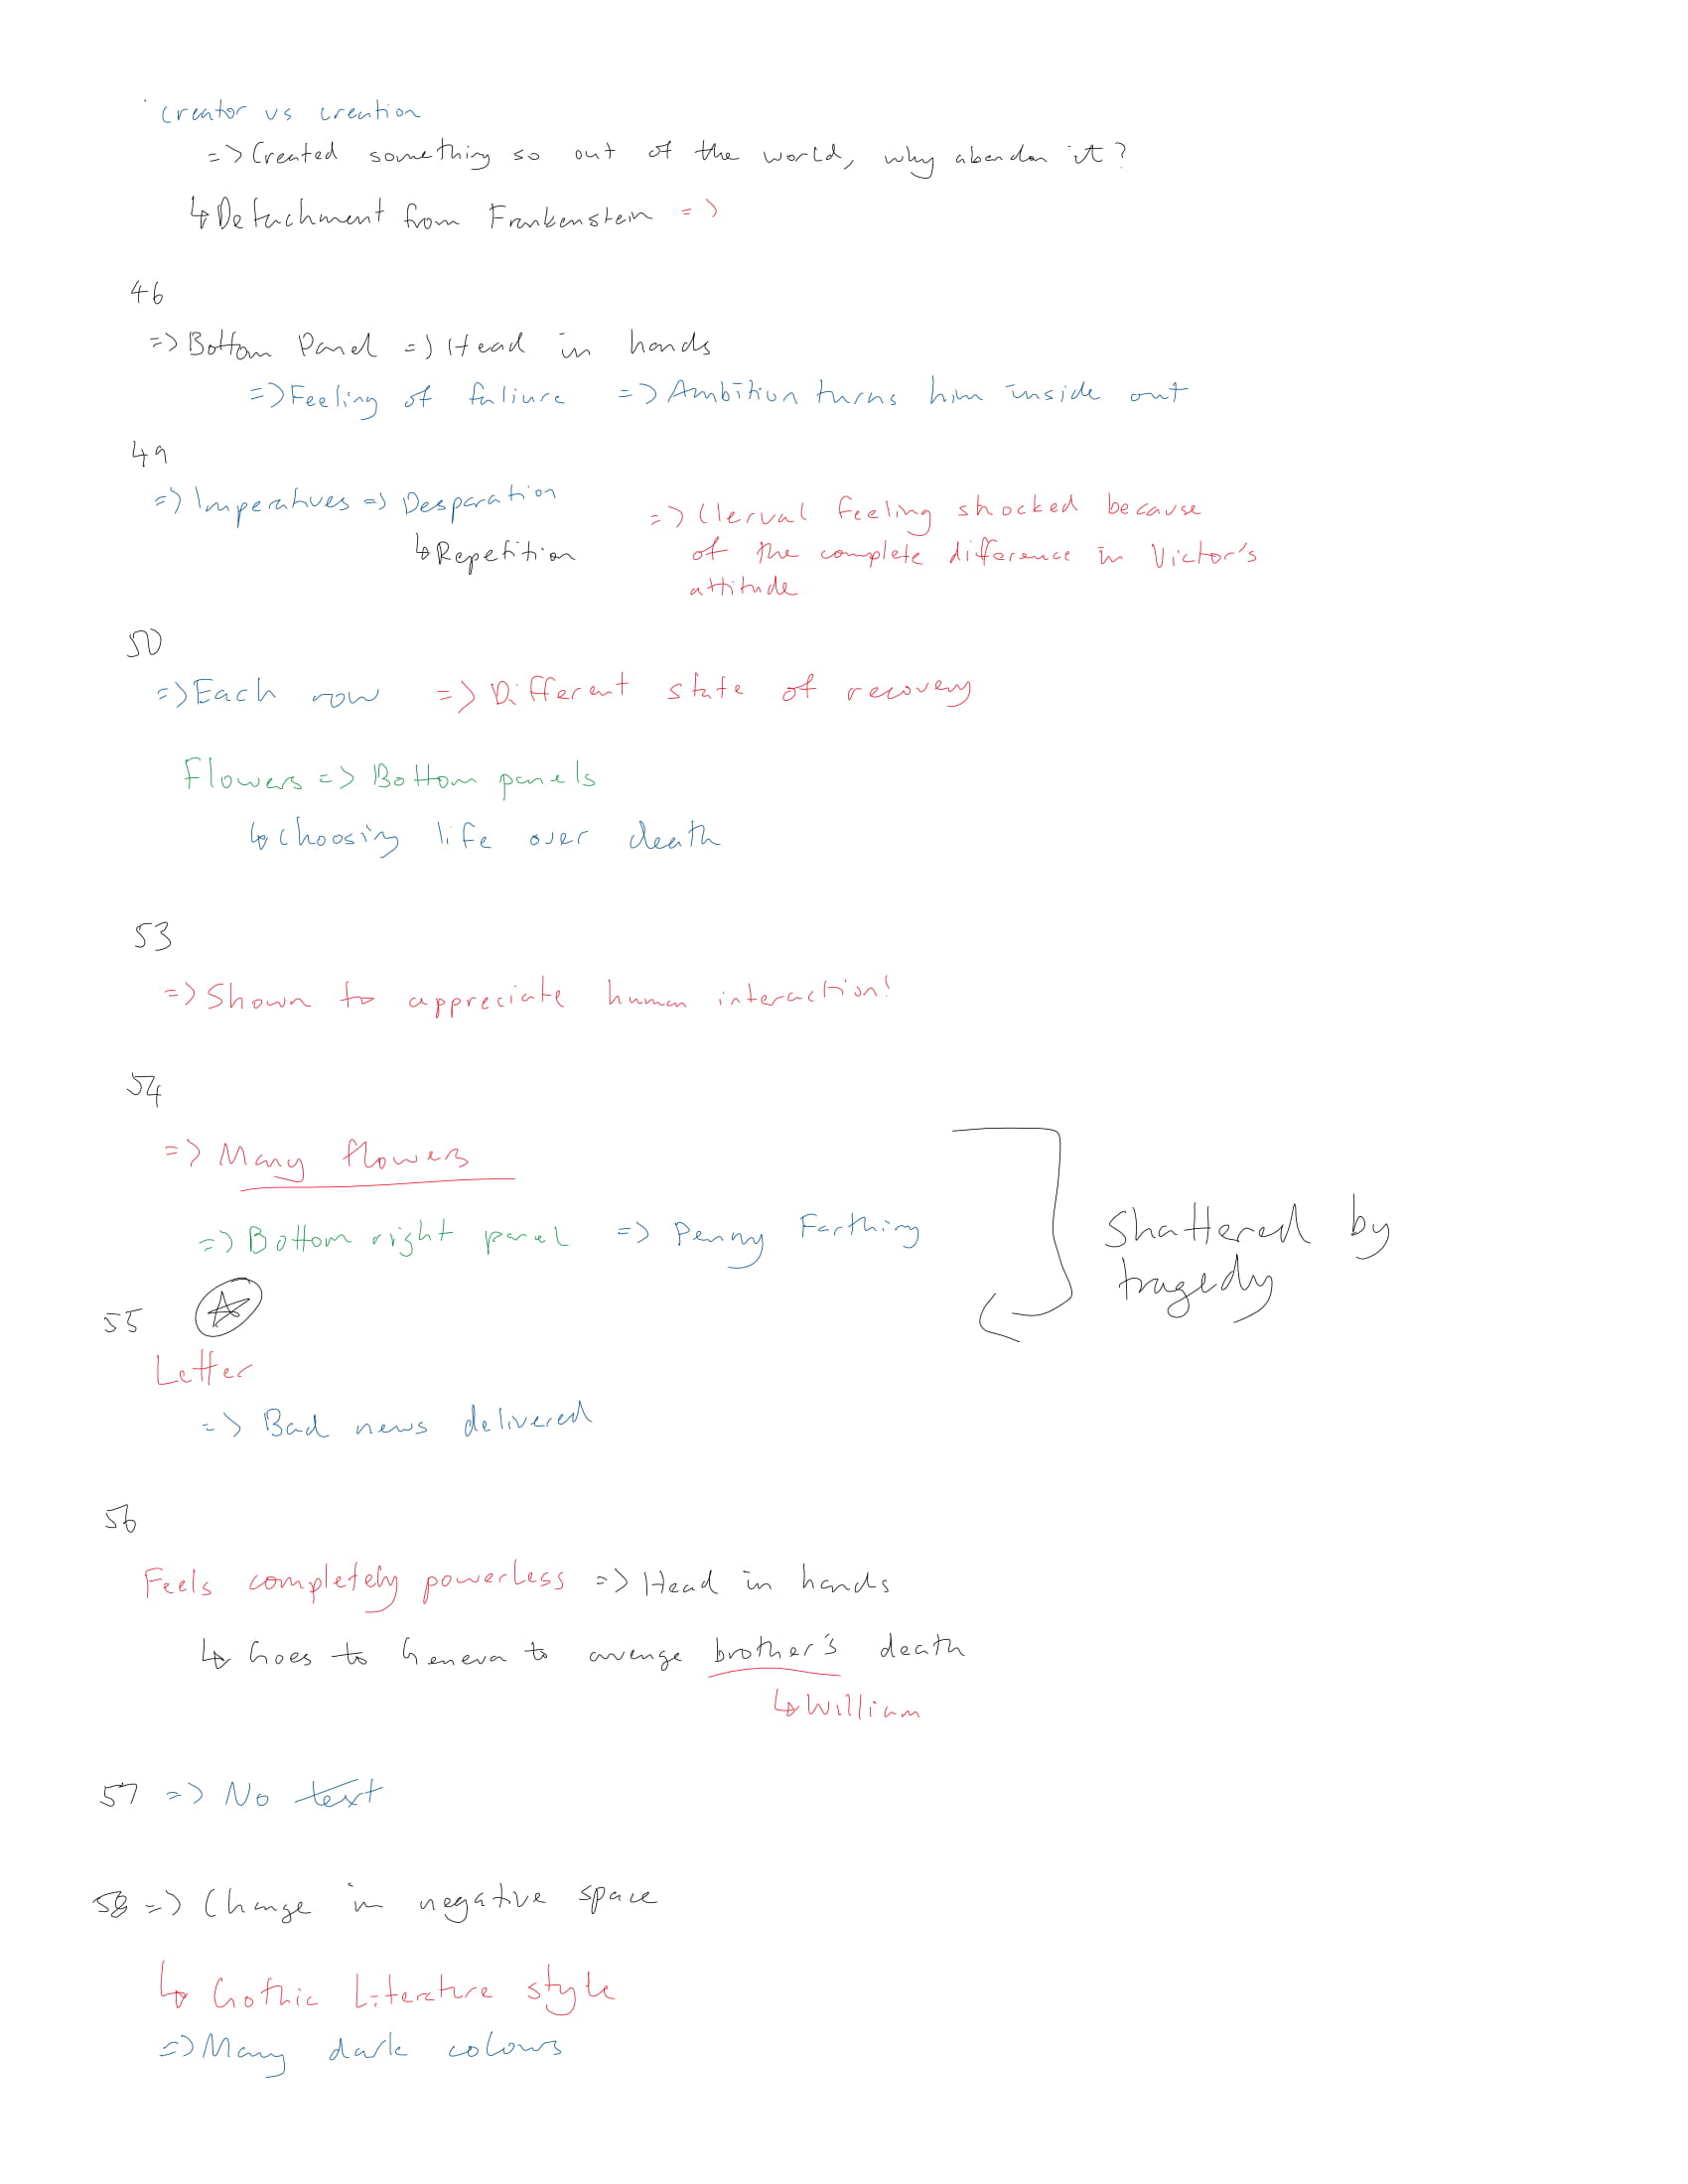 creator vs creation
=> Created something so out of the world, why abandon it?
↳ Detachment from Frankenstein =>
46
=> Bottom Panel => Head in hands
=> Feeling of faliure => Ambition turns him inside out
49
=> Imperatives => Desparation
↳ Repetition
=> Clerval feeling shocked because
of the complete difference in Victor's
attitude
50
=> Each row => Different state of recovery
Flowers => Bottom panels
↳ choosing life over death
53
=> Shown to appreciate human interaction!
54
=> Many flowers
=> Bottom right panel => Penny Farthing
Shattered by
tragedy
55
Letter
=> Bad news delivered
56
Feels completely powerless => Head in hands
↳ Goes to Geneva to avenge brother's death
↳ William
57 => No text
58 => Change in negative space
↳ Gothic Literature style
=> Many dark colours